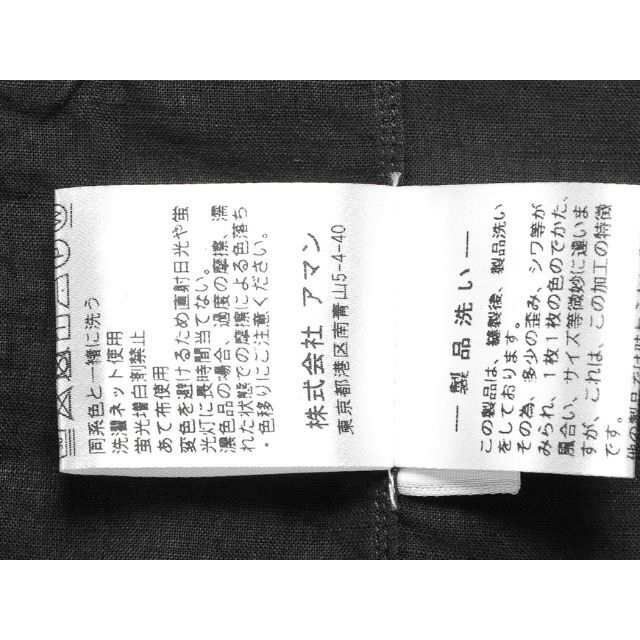 同系色と一緒に洗う
洗濯ネット使用
蛍光増白剤禁止
あて布使用
変色を避けるため直射日光や蛍
光灯に長時間当てない。
濃色品の場合、過度の摩擦、濡
れた状態での摩擦による色落ち
・色移りにご注意ください。
株式会社 アマン
東京都港区南青山5-4-40
― 製品洗い ―
この製品は、縫製後、製品洗い
をしております。
その為、多少の歪み、シワ等が
みられ、1枚1枚の色のでかた、
風合い、サイズ等微妙に違いま
すが、これは、この加工の特徴
です。